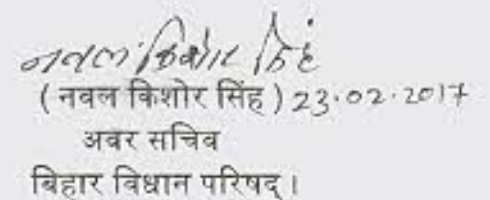 नवल किशोर सिंह
(नवल किशोर सिंह) 23.02.2017
अवर सचिव
बिहार विधान परिषद्।